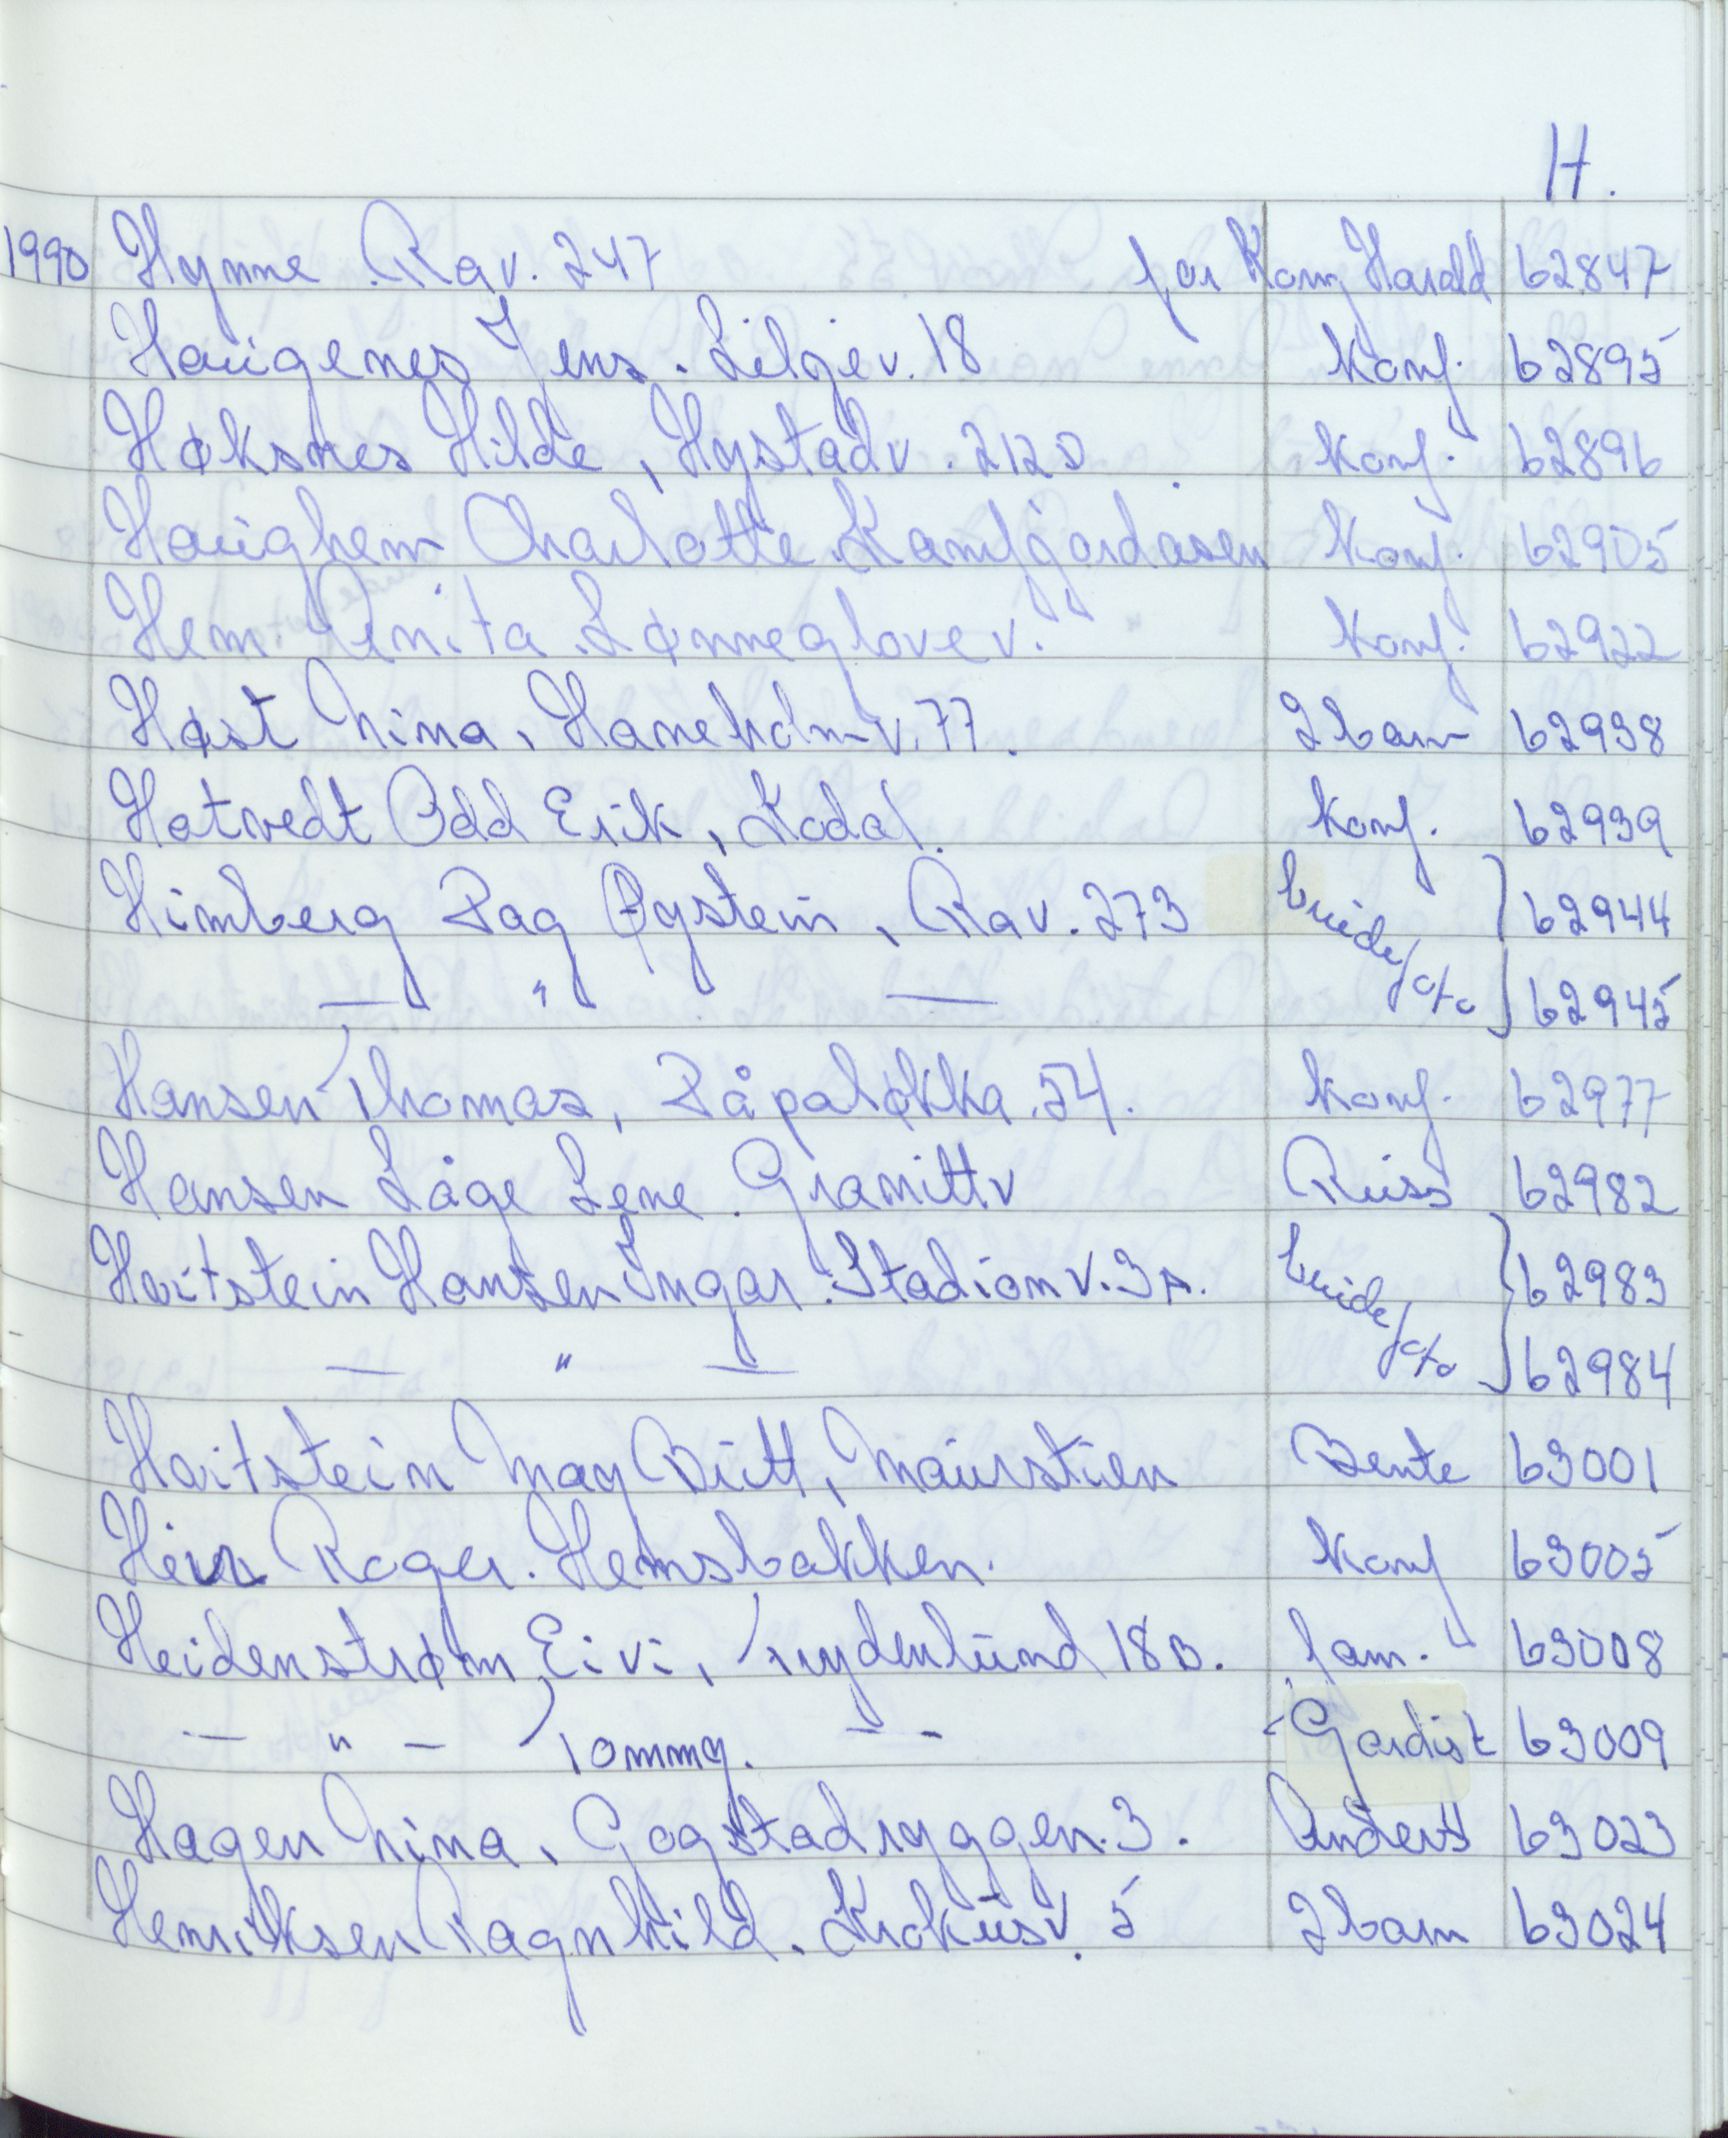 H.
1990 Hynne Rav. 247 for Kong Harald 62847
Haugenes Jens. Liljev. 18 Konf. 62895
Høksnes Hilde, Hystadv. 212D Konf. 62896
Haughem Charlotte Kamfjordåsen Konf. 62905
Hem Anita. Lønneglovev. Konf. 62922
Høst Nina, Haneholmv. 77. 2 barn 62938
Hotvedt Odd Erik, Kodal. Konf. 62939
Himberg Dag Øystein, Rav. 273 brude/ 62944
— " — 62945
Hansen Thomas, Dåpaløkka. 54. Konf. 62977
Hansen Låge Lene. Granittv Russ 62982
Hvitstein Hansen Ingar. Stadionv. 3A. brude/ 62983
— " — 62984
Hvitstein May Britt, Maurstien Bente 63001
Roger. Hemsbakken. Konf 63005
Heidenstrøm Eivi, Frydenlund 18B. fam. 63008
— " — Tommy. — - Gardist 63009
Hagen Nina, Gogstadryggen. 3. Anders 63023
Henriksen Ragnhild. Krokusv. 5 2 barn 63024